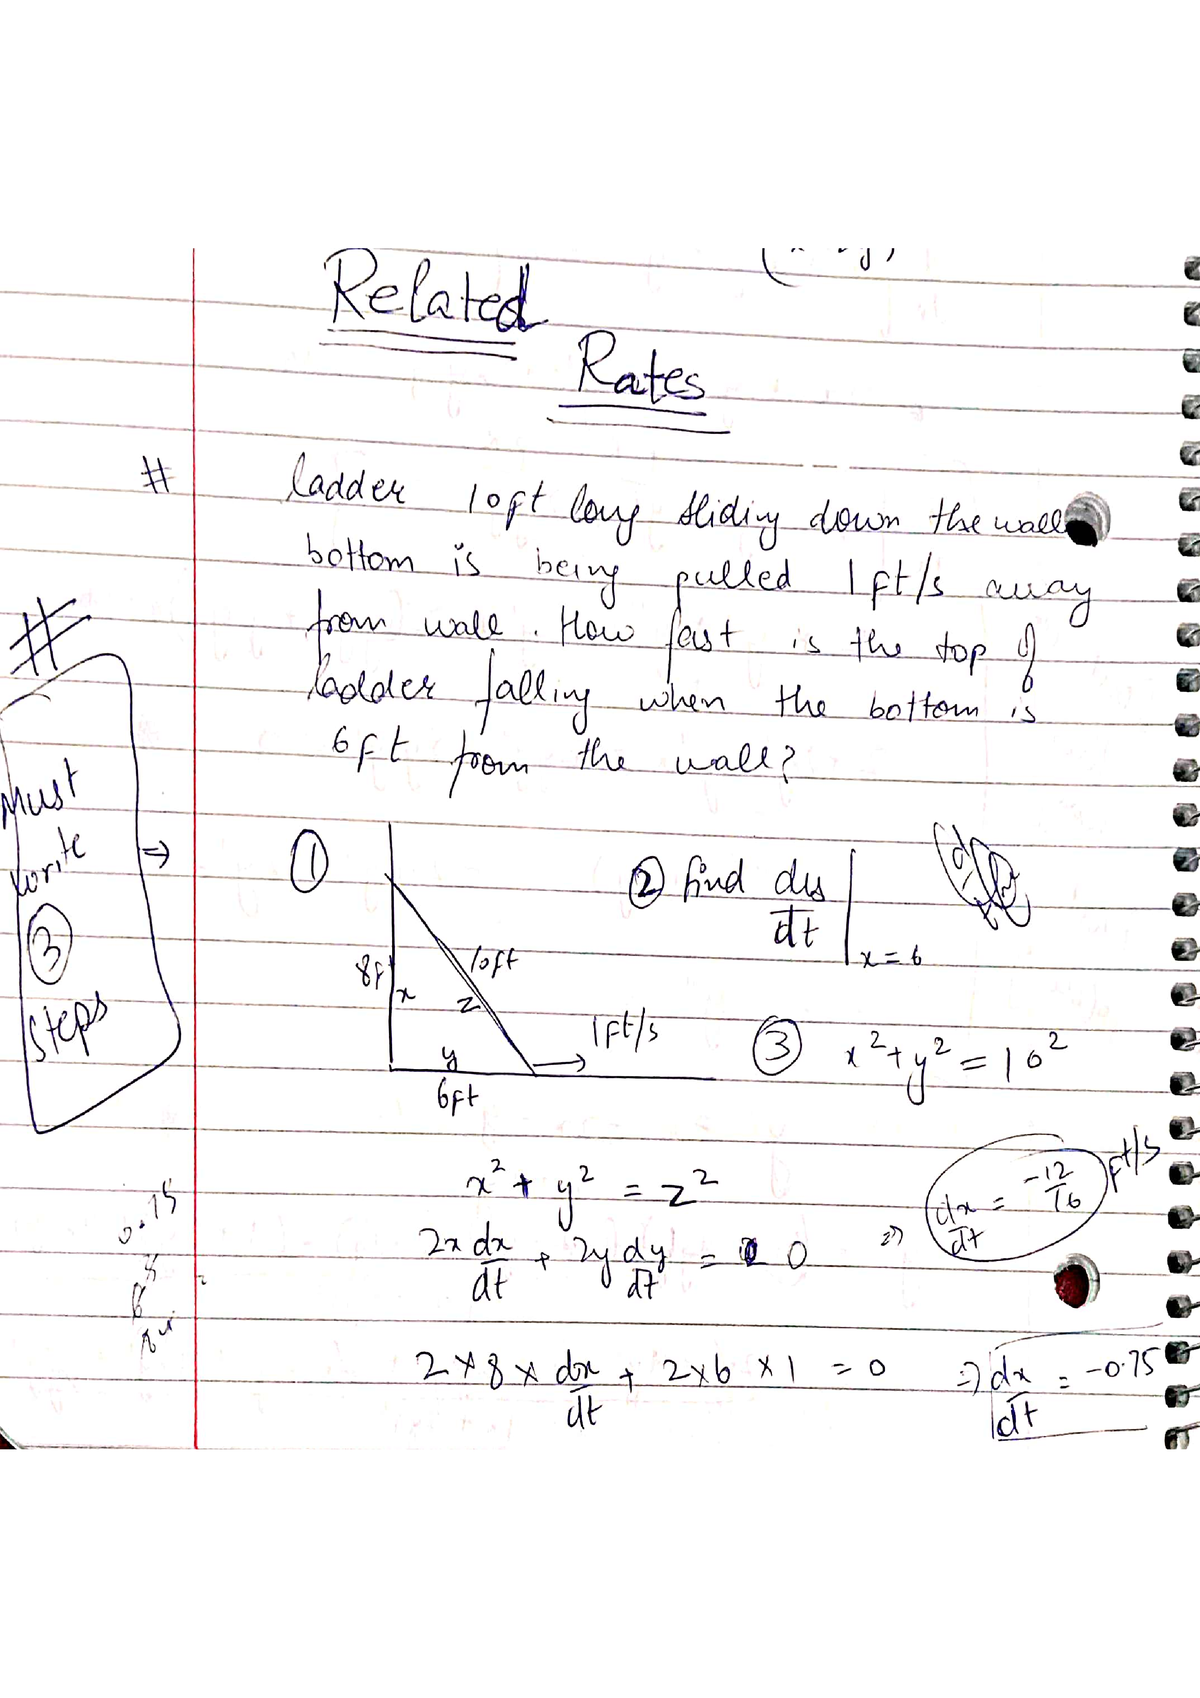 Related
Rates
# ladder 10ft long sliding down the wall
bottom is being pulled 1ft/s away
from wall. How fast is the top of
ladder falling when the bottom is
6ft from the wall?
#
Must
write
③
steps
⇒
①
8ft
x
10ft
z
y
6ft
1ft/s
② find dy/dt | x = 6
③ x² + y² = 10²
x² + y² = z²
2x dx/dt + 2y dy/dt = 0
⇒ dx/dt = -12/16 ft/s
2 × 8 × dx/dt + 2×6 × 1 = 0 ⇒ dx/dt = -0.75
0.75